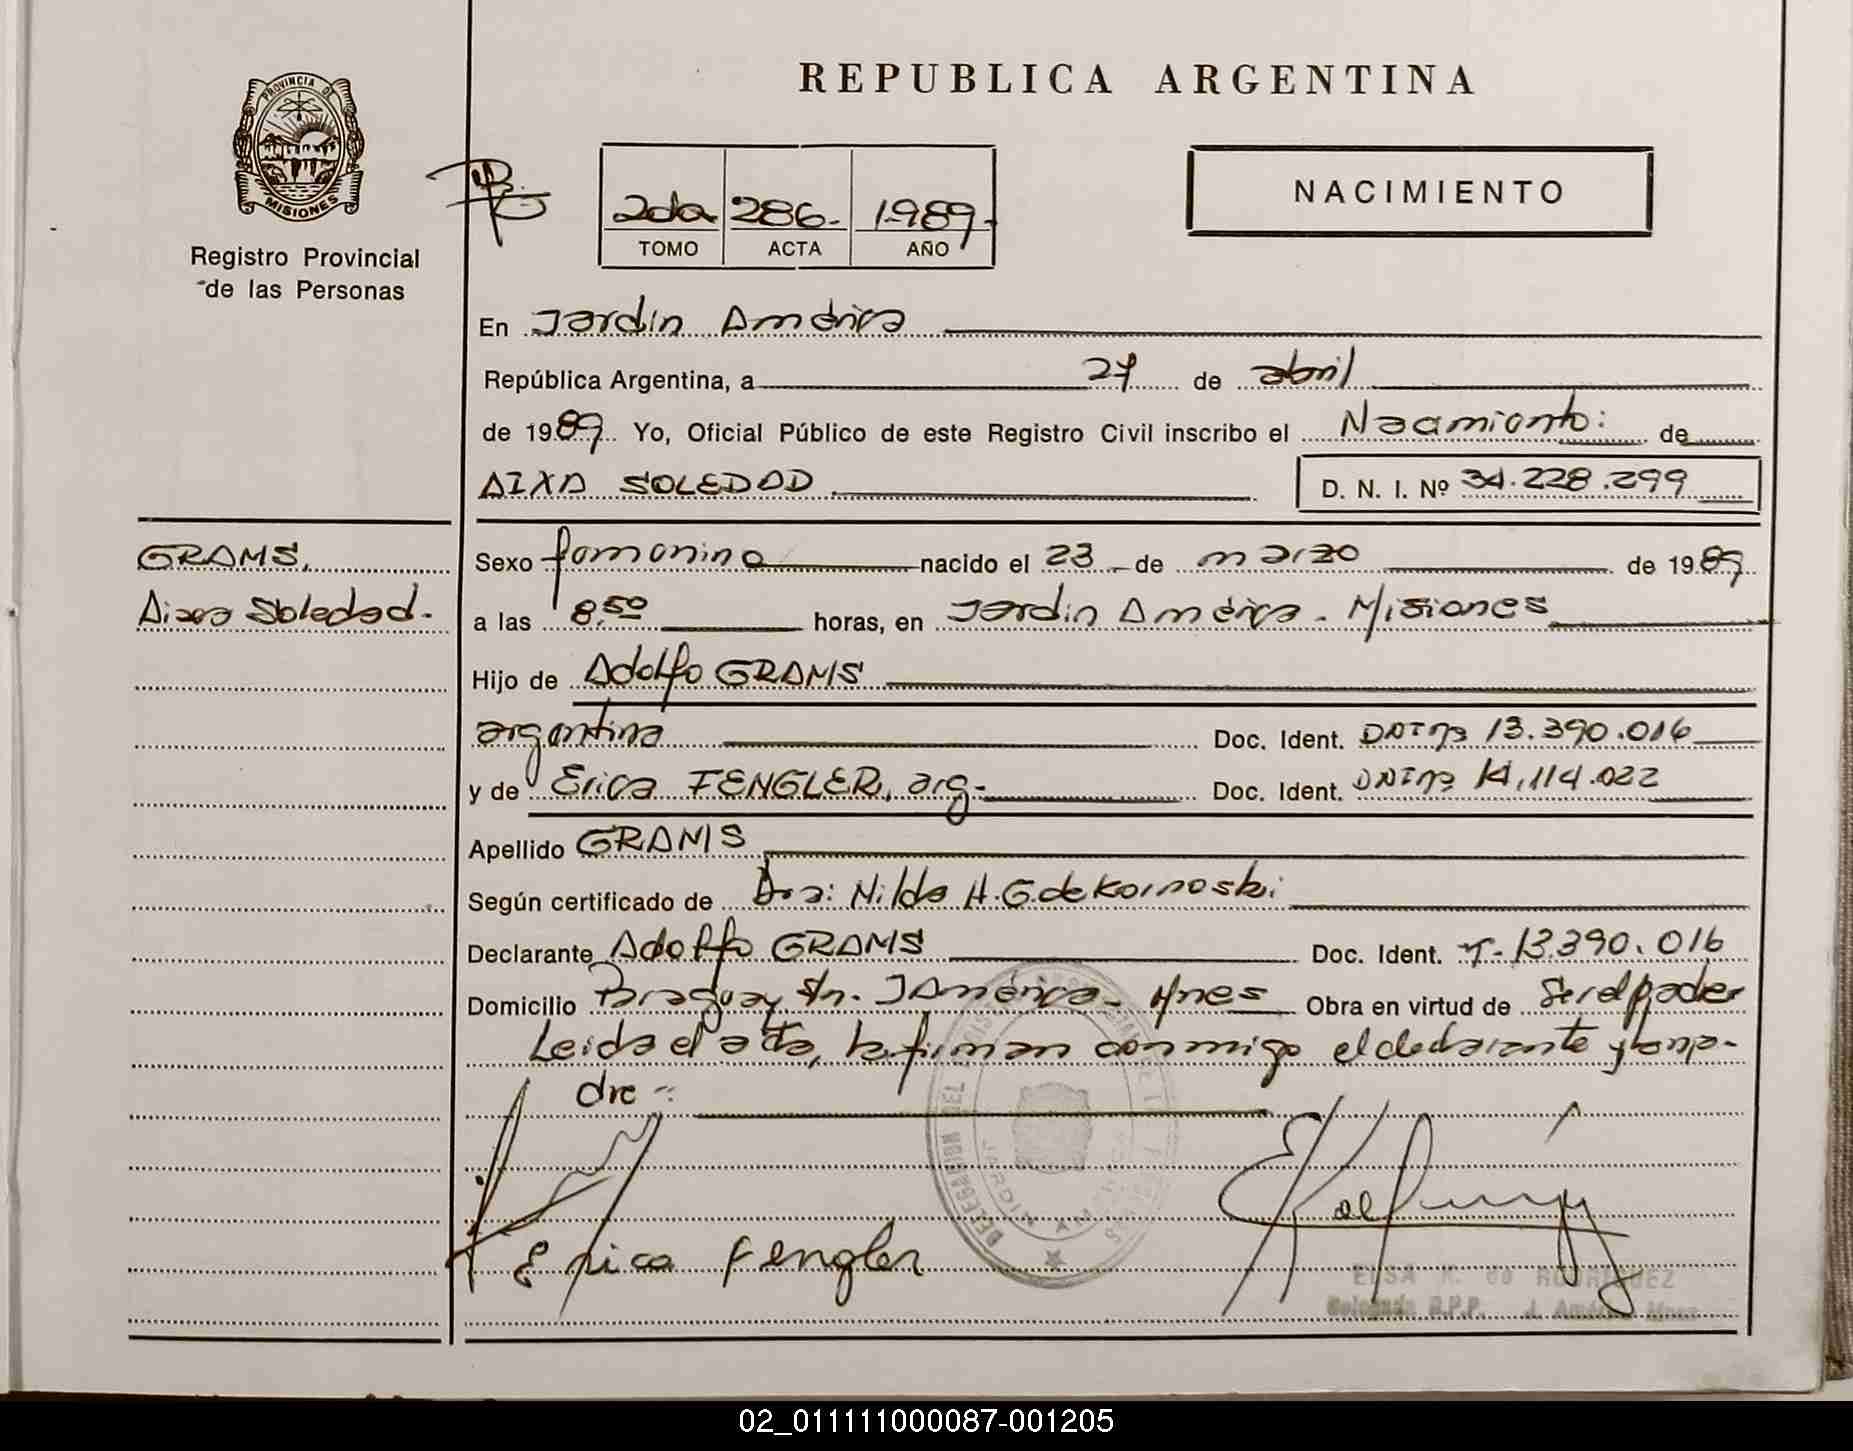 PROVINCIA DE
MISIONES
Registro Provincial
de las Personas
REPUBLICA ARGENTINA
NACIMIENTO
2da 286. 1989.
TOMO ACTA AÑO
En Jardin América
República Argentina, a 27 de abril
de 1989 Yo, Oficial Público de este Registro Civil inscribo el Nacimiento: de
AIXA SOLEDAD D. N. I. Nº 34.228.299
GRAMS,
Aixa Soledad.
Sexo femenino nacido el 23 de marzo de 1989
a las 8,50 horas, en Jardin América - Misiones
Hijo de Adolfo GRAMS
argentina Doc. Ident. DNI nº 13.390.016
y de Erica FENGLER, arg. Doc. Ident. DNI nº 14,114.022
Apellido GRAMS
Según certificado de Dra: Nilda H. G. de
Declarante Adolfo GRAMS Doc. Ident. 13.390.016
Domicilio s/n. J América - Mnes Obra en virtud de Ser el padre
Leida el acta, la firman conmigo el declarante y la ma-
dre
DELEGACION DEL
JARDIN AMERICA
Erica Fengler
ELSA K. de RODRIGUEZ
Delegada R.P.P. J. América Mnes
02_011111000087-001205